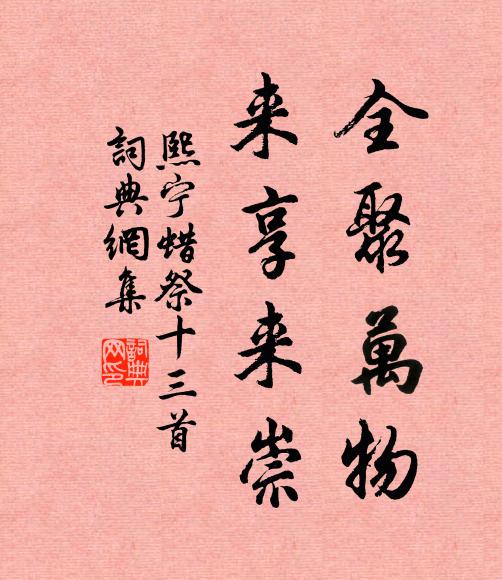 全聚萬物
来享来崇
熙宁蜡祭十三首
詞典網集
詞典网印